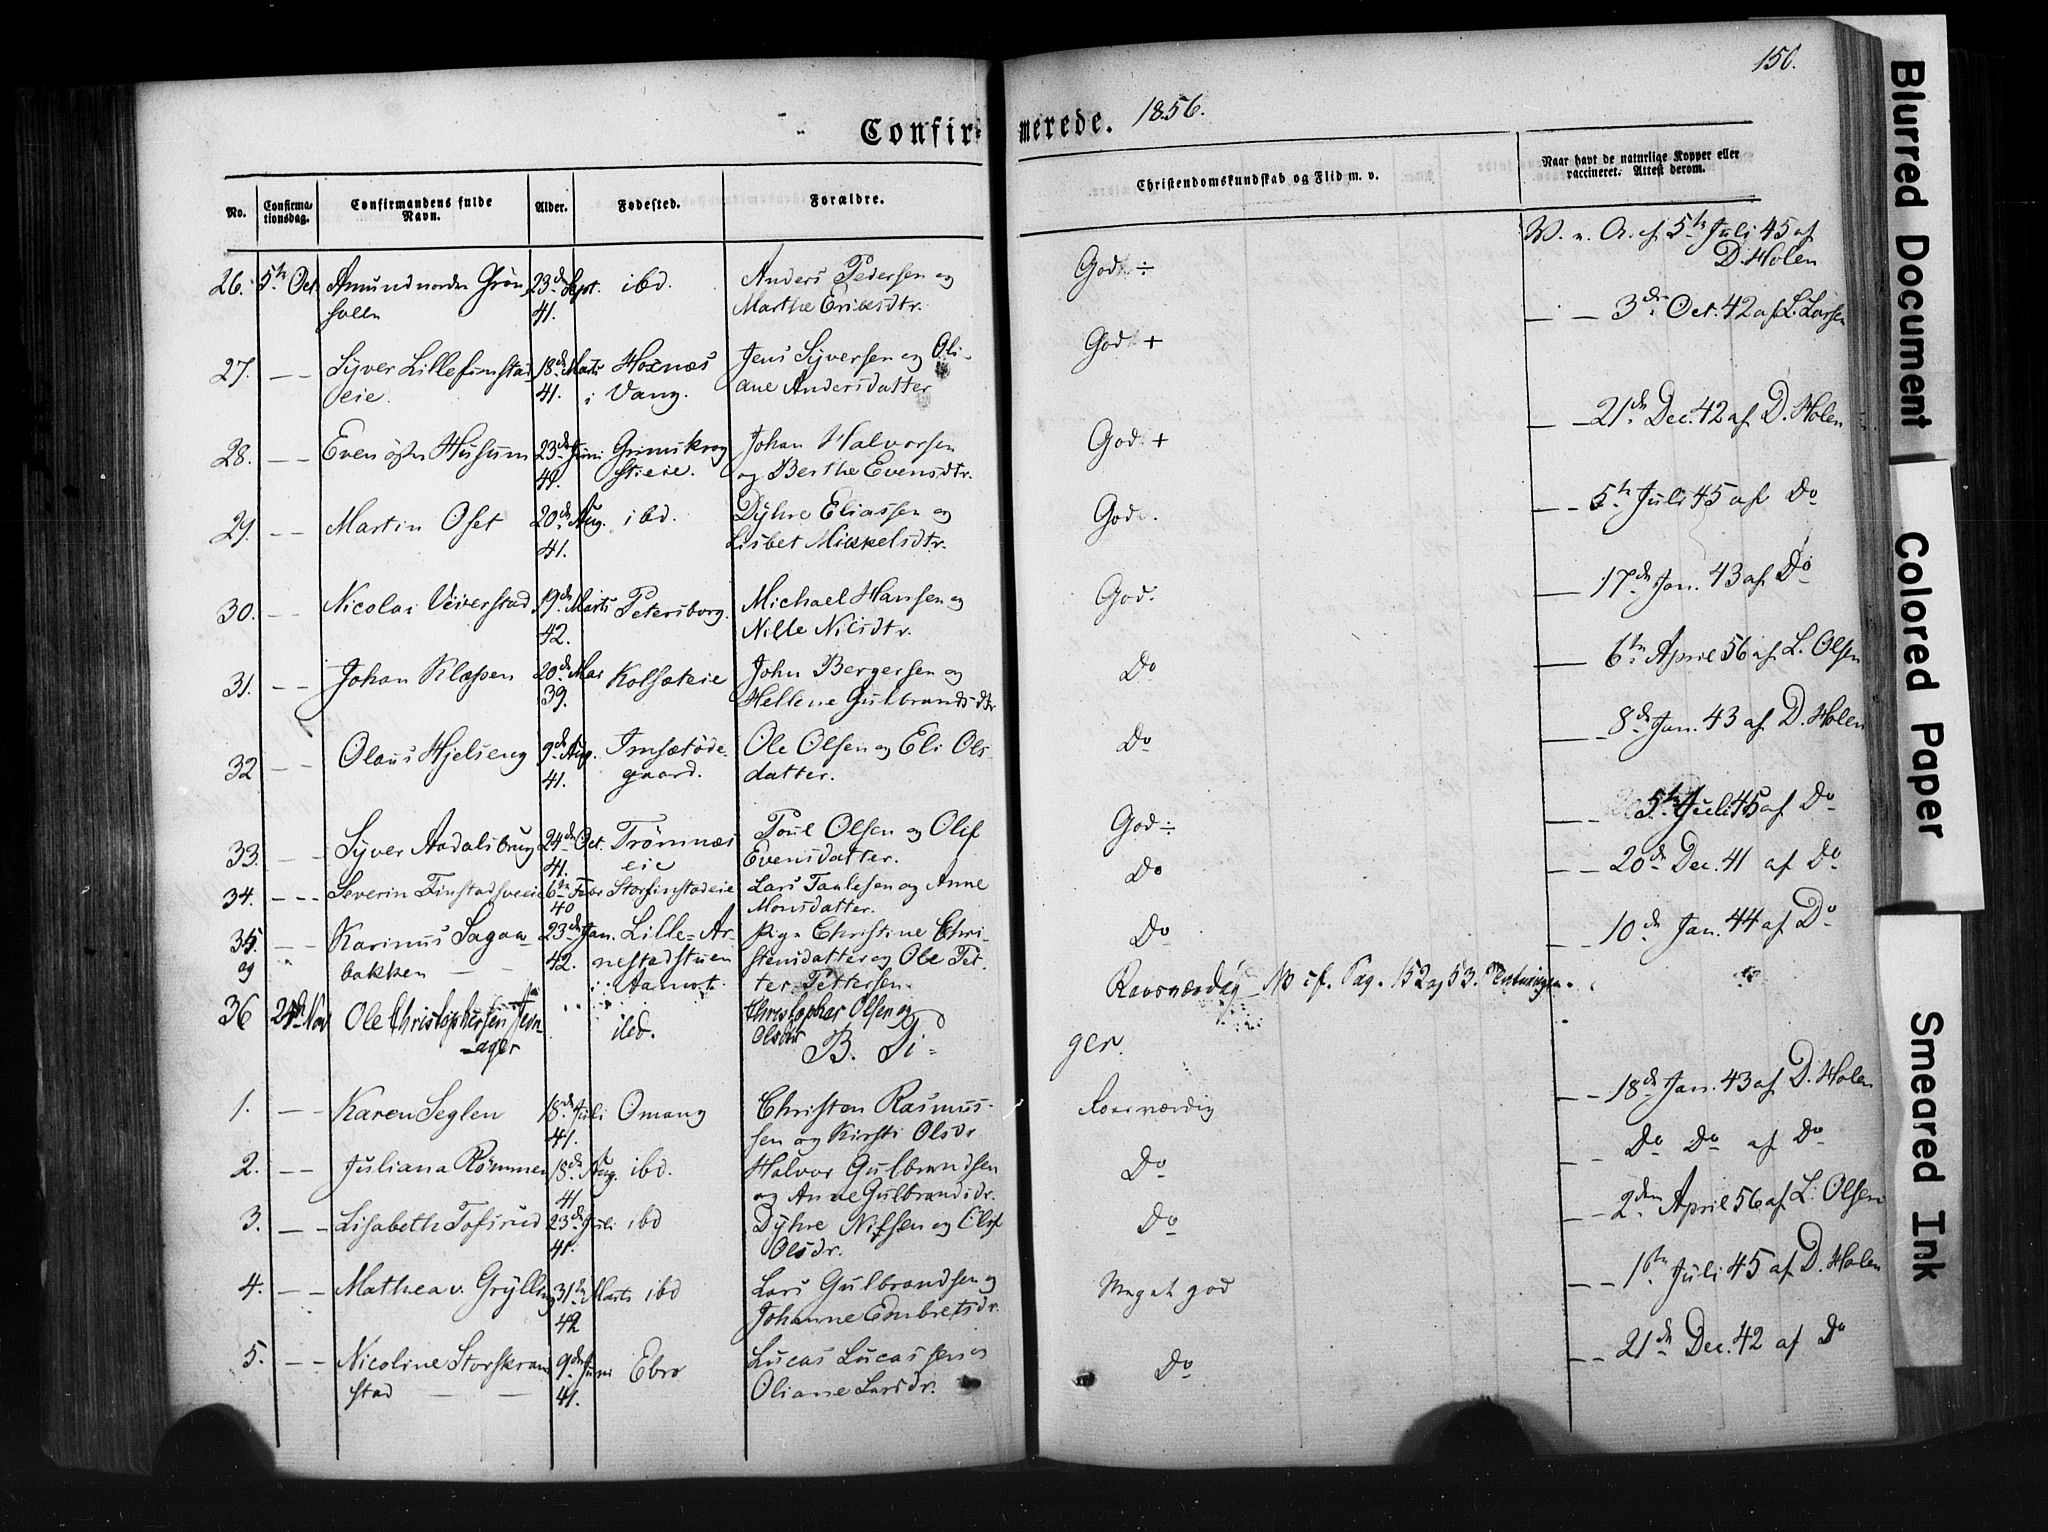 150.
Confir- merede. 1856.
No. Confirma- tionsdag. Confirmandens fulde Navn. Alder. Fødested. Forældre. Christendomskundskab og Flid m. v. Naar havt de naturlige Kopper eller vaccineret. Attest derom.
26. 5te Oct. Amund norden Grøn- 23de Sept. ibd. Anders Pedersen og God ÷ V. n. A. af 5te Juli 45 af
41. Marthe Eriksdtr. D. Holen
27. — — Syver Lillefinstad 18de Marts Hoxnæs Jens Syversen og Oli- God + — — 3die Oct. 42 af L. Larsen
eie. 41. i Vang. ane Andersdatter
28. — — Even østen Husum 23de Juni Grimskrog Johan Halvorsen God + — 21de Dec. 42 af D. Holen
eie. og Berthe Evensdtr.
29. — — Martin Oset 20de Aug. ibd. Dyhre Eliassen og God. — — 5te Juli 45 af Do
41. Lisbet Mikkelsdtr.
30. — — Nicolai Veiverstad 19de Marts Petersborg. Michael Hansen og God. — 17de Jan. 43 af Do
42. Nille Nilsdtr.
31. — — Johan Klæpen 20de Mai Kolsæteie John Bergersen og Do — 6te April 56 af L. Olsen
39. Hellene Gulbrandsdtr
32 — — Olaus Hjelseng 9de Aug. Imsetøde- Ole Olsen og Eli Ols- Do — 8de Jan. 43 af D. Holen
41. gaard. datter.
33. — — Syver Aadalsbrug 24de Oct. Trømnæs Poul Olsen og Olif God ÷ — — 5te Juli 45 af Do
41. eie Evensdatter.
34. — — Severin Finstadsveeie 6te Febr Storfinstadeie Lars Taalesen og Anne Do — — 20de Dec. 41 af Do
40 Monsdatter.
35. — — Karinus Sagaa- 23de Jan. Lille-Ar- Pige Christine Chri- Do — — 10de Jan. 44 af Do
og bakken — — 42. nestadstuen stensdatter og Ole Pet-
i Aamot. ter Pettersen.
36 Nov Ole Christophersen ibd. Christopher Olsen og Raosværdig NB cf. Pag. 152 og 53.
ager Olsdtr
B. Pi- ger.
1. — — Karen Seglen 18de Juli Omang Christen Rasmus- Roesværdig — — 18de Jan. 43 af D. Holen
41. sen og Kirsti Olsdr
2. — — Juliana Rømmen 18de Aug. ibd. Halvor Gulbrandsen Do — Do Do af Do
41 og Anne Gulbrandsdr.
3. — — Lisabeth Tofsrud 23de Juli ibd Dyhre Nilsen og Olif Do — — 2den April 56 af L. Olsen
41. Olsdr.
4. — — Mathea v. Grylling 31te Marts ibd Lars Gulbrandsen og Meget god — — 1te Juli 45 af D. Holen
42 Johanne Embretsdr.
5. — — Nicoline Storskram- 9de Juni Ebro Lucas Lucassen og Do — — 21de Dec. 42 af Do
stad — — 41. Oliane Larsdr.
Blurred Document
Colored Paper
Smeared Ink